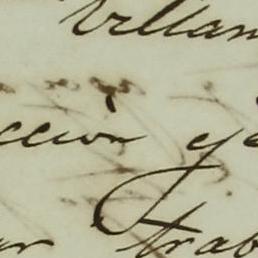 Villan
cción ye
ar trab